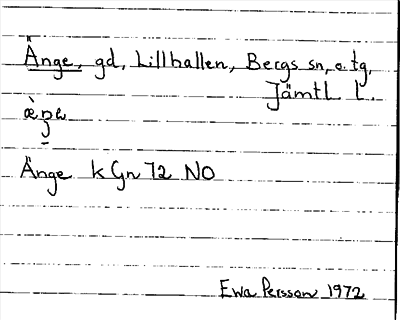 Änge, gd, Lillhallen, Bergs sn, o. tg,
Jämtl l.
Änge k Gn 72 NO
Ewa Persson 1972